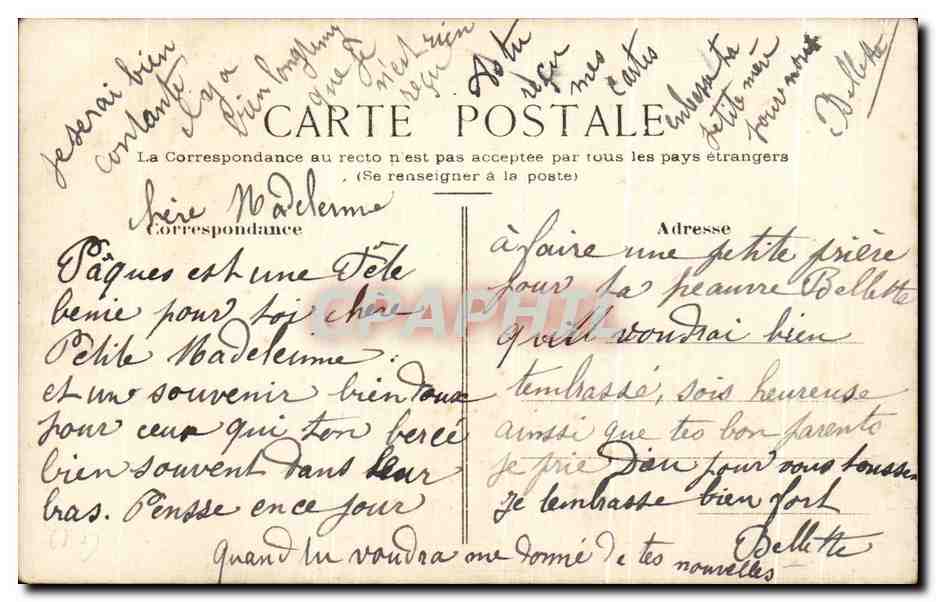 CARTE POSTALE
La Correspondance au recto n'est pas acceptée par tous les pays étrangers
(Se renseigner à la poste)
Correspondance
Adresse
chère Madeleinne
Pâques est une Fête
benie pour toi chère
Petite Madeleinne.
et un souvenir bien doux
pour ceux qui ton bercé
bien souvent dans leur
bras. Pensse en ce jour
à faire une petite prière
pour ta peauvre Bellette
qui voudrai bien
tembrassé, sois heureuse
ainssi que tes bon parents
je prie Dieu pour vous toussen
je tembrasse bien fort
Bellette
quand tu voudra me donné de tes nouvelles
je serai bien
contante
il y a
bien longtemp
que je
n'est rien
reçu
as tu
reçu
mes
cartes
embrasse ta
petite mère
pour moi
Bellette
CPAPHIL